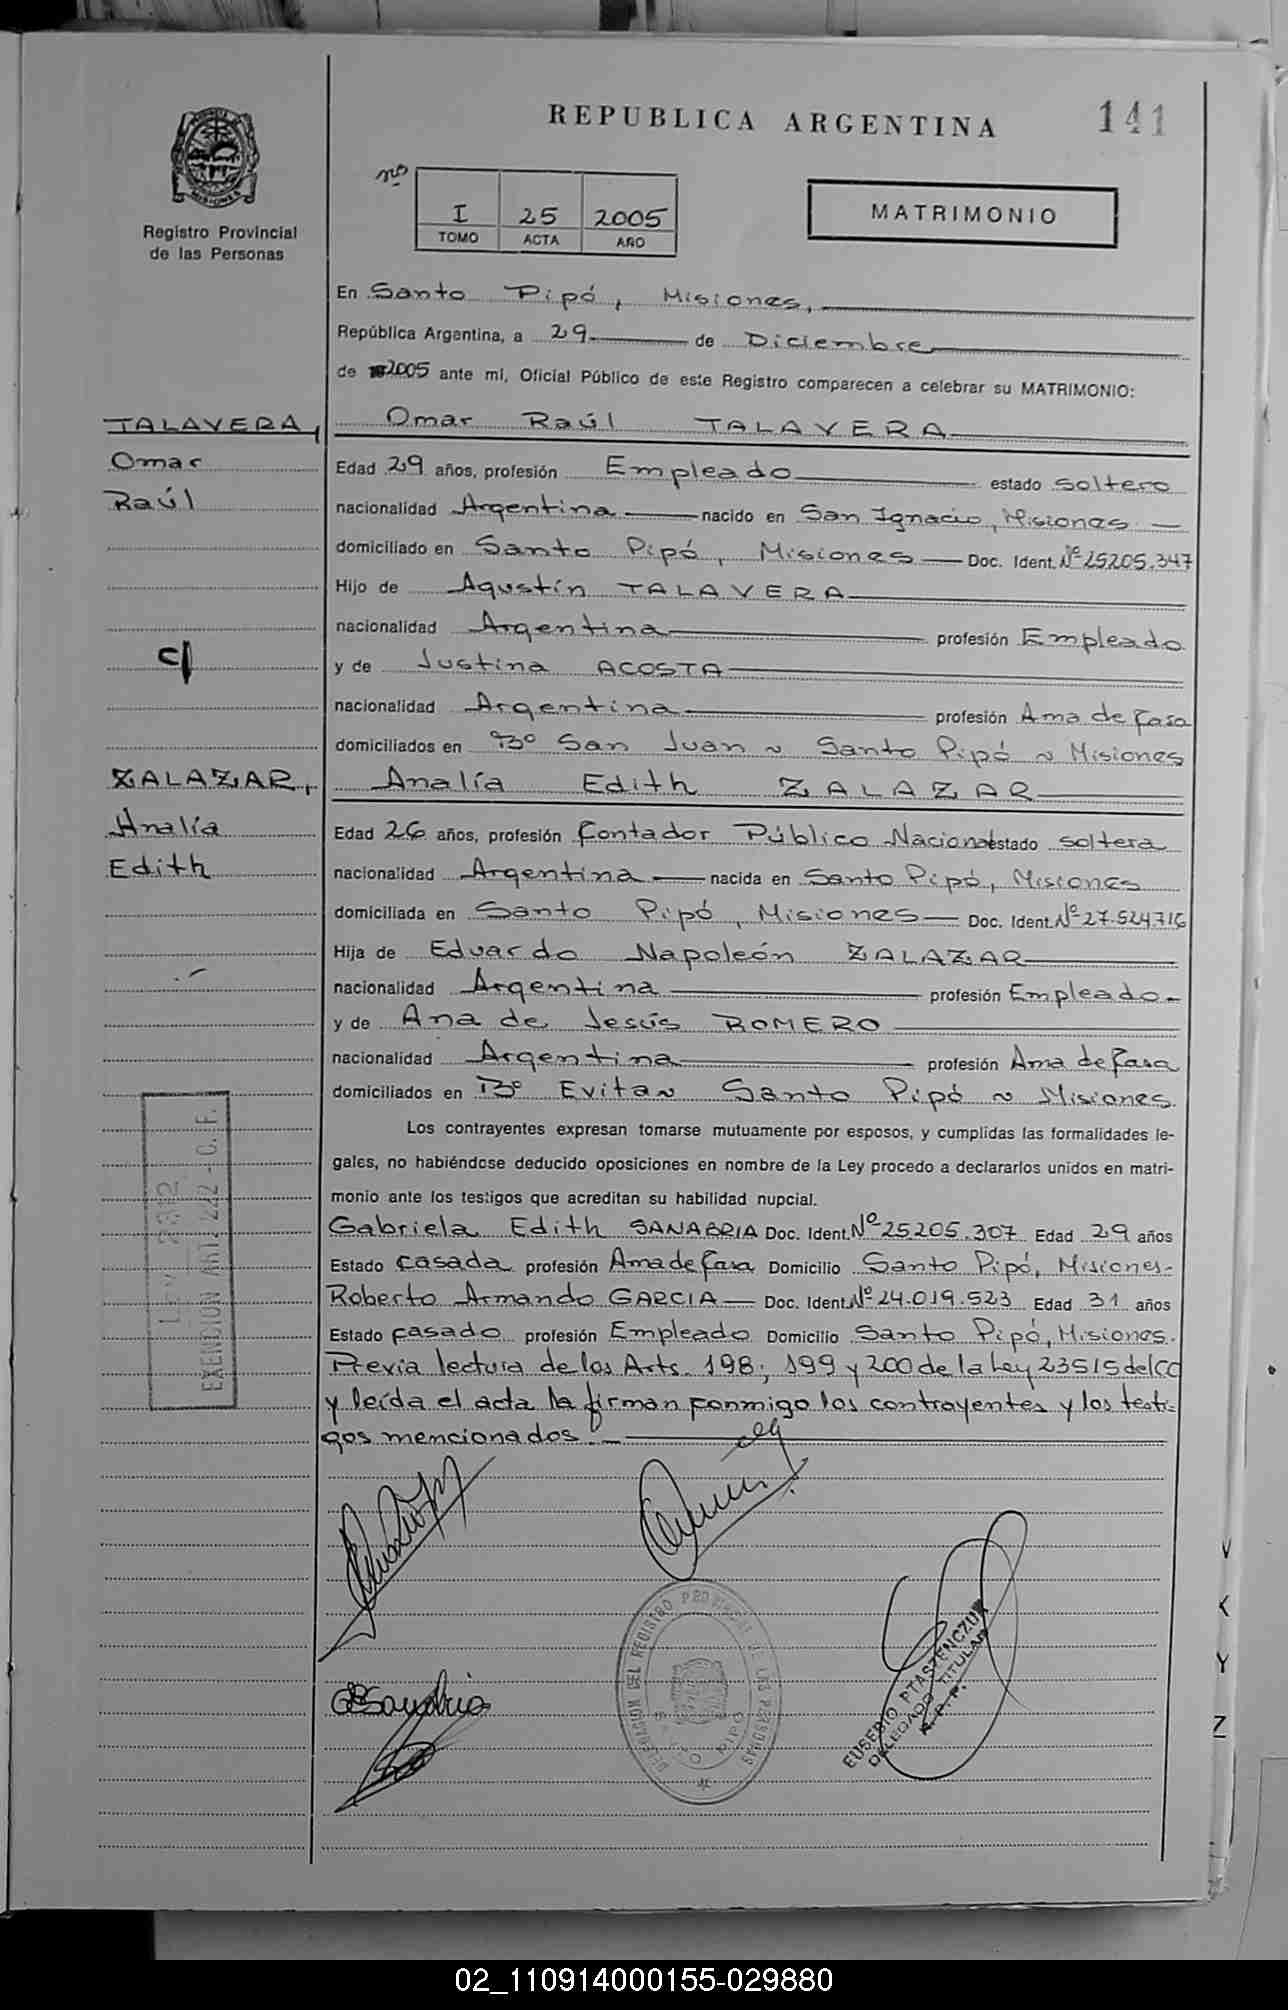 REPUBLICA ARGENTINA
141
Registro Provincial
de las Personas
nº
I 25 2005
TOMO ACTA AÑO
MATRIMONIO
En Santo Pipó, Misiones,
República Argentina, a 29 de Diciembre
de 2005 ante mí, Oficial Público de este Registro comparecen a celebrar su MATRIMONIO:
TALAVERA,
Omar
Raúl
Omar Raúl TALAVERA
Edad 29 años, profesión Empleado estado soltero
nacionalidad Argentina nacido en San Ignacio, Misiones
domiciliado en Santo Pipó, Misiones Doc. Ident. Nº 25205.347
Hijo de Agustín TALAVERA
nacionalidad Argentina profesión Empleado
y de Justina ACOSTA
nacionalidad Argentina profesión Ama de Casa
domiciliados en Bº San Juan ~ Santo Pipó ~ Misiones
ZALAZAR,
Analía
Edith
Analía Edith ZALAZAR
Edad 26 años, profesión Contador Público Nacional estado soltera
nacionalidad Argentina nacida en Santo Pipó, Misiones
domiciliada en Santo Pipó, Misiones Doc. Ident. Nº 27.524.716
Hija de Eduardo Napoleón ZALAZAR
nacionalidad Argentina profesión Empleado
y de Ana de Jesús ROMERO
nacionalidad Argentina profesión Ama de Casa
domiciliados en Bº Evita ~ Santo Pipó ~ Misiones
Los contrayentes expresan tomarse mutuamente por esposos, y cumplidas las formalidades le-
gales, no habiéndose deducido oposiciones en nombre de la Ley procedo a declararlos unidos en matri-
monio ante los testigos que acreditan su habilidad nupcial.
Gabriela Edith SANABRIA Doc. Ident. Nº 25205.307 Edad 29 años
Estado casada profesión Ama de Casa Domicilio Santo Pipó, Misiones.
Roberto Armando GARCIA Doc. Ident. Nº 24.019.523 Edad 31 años
Estado casado profesión Empleado Domicilio Santo Pipó, Misiones.
Previa lectura de los Arts. 198; 199 y 200 de la Ley 23515 del CC
y leída el acta la firman conmigo los contrayentes y los testi-
gos mencionados.
EXENCION ART. 222 - C. F.
DELEGACION DEL REGISTRO PROVINCIAL DE LAS PERSONAS
SANTO PIPO
EUSEBIO PTASZENCZUK
DELEGADO TITULAR
R. P. P.
V
K
Y
Z
02_110914000155-029880